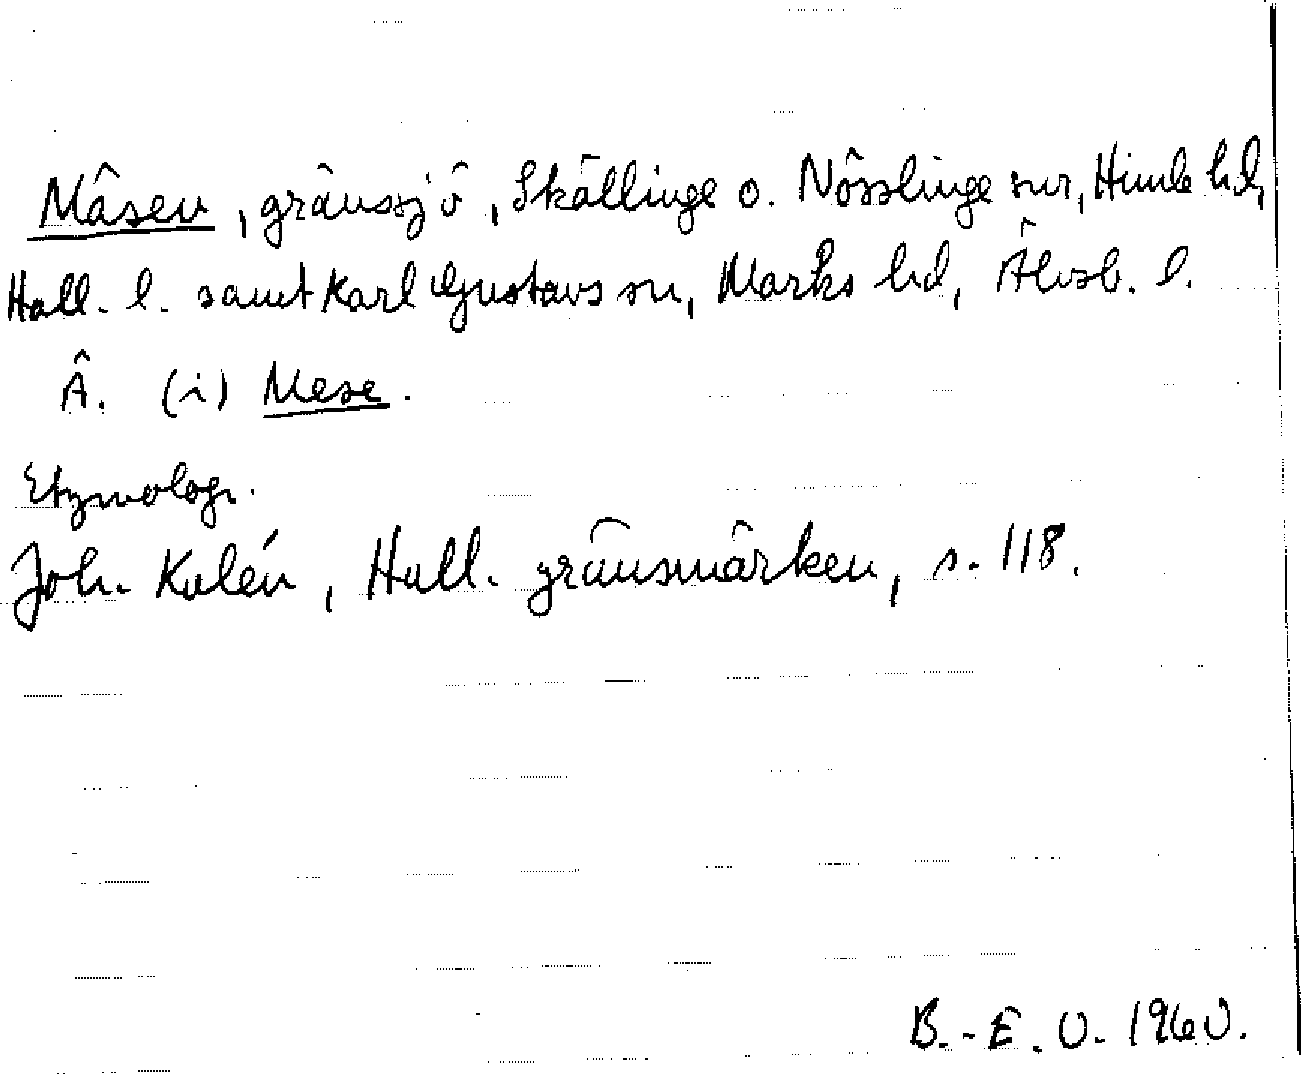 Mäsen, gränssjö, Skällinge o. Nösslinge snr, Himle hd,
Hall. l. samt Karl Gustavs sn, Marks hd, Älvsb. l.
Ä. (i) Mese.
Etymologi.
Joh. Kalén, Hall. gränsmärken, s. 118.
B.-E. O. 1960.